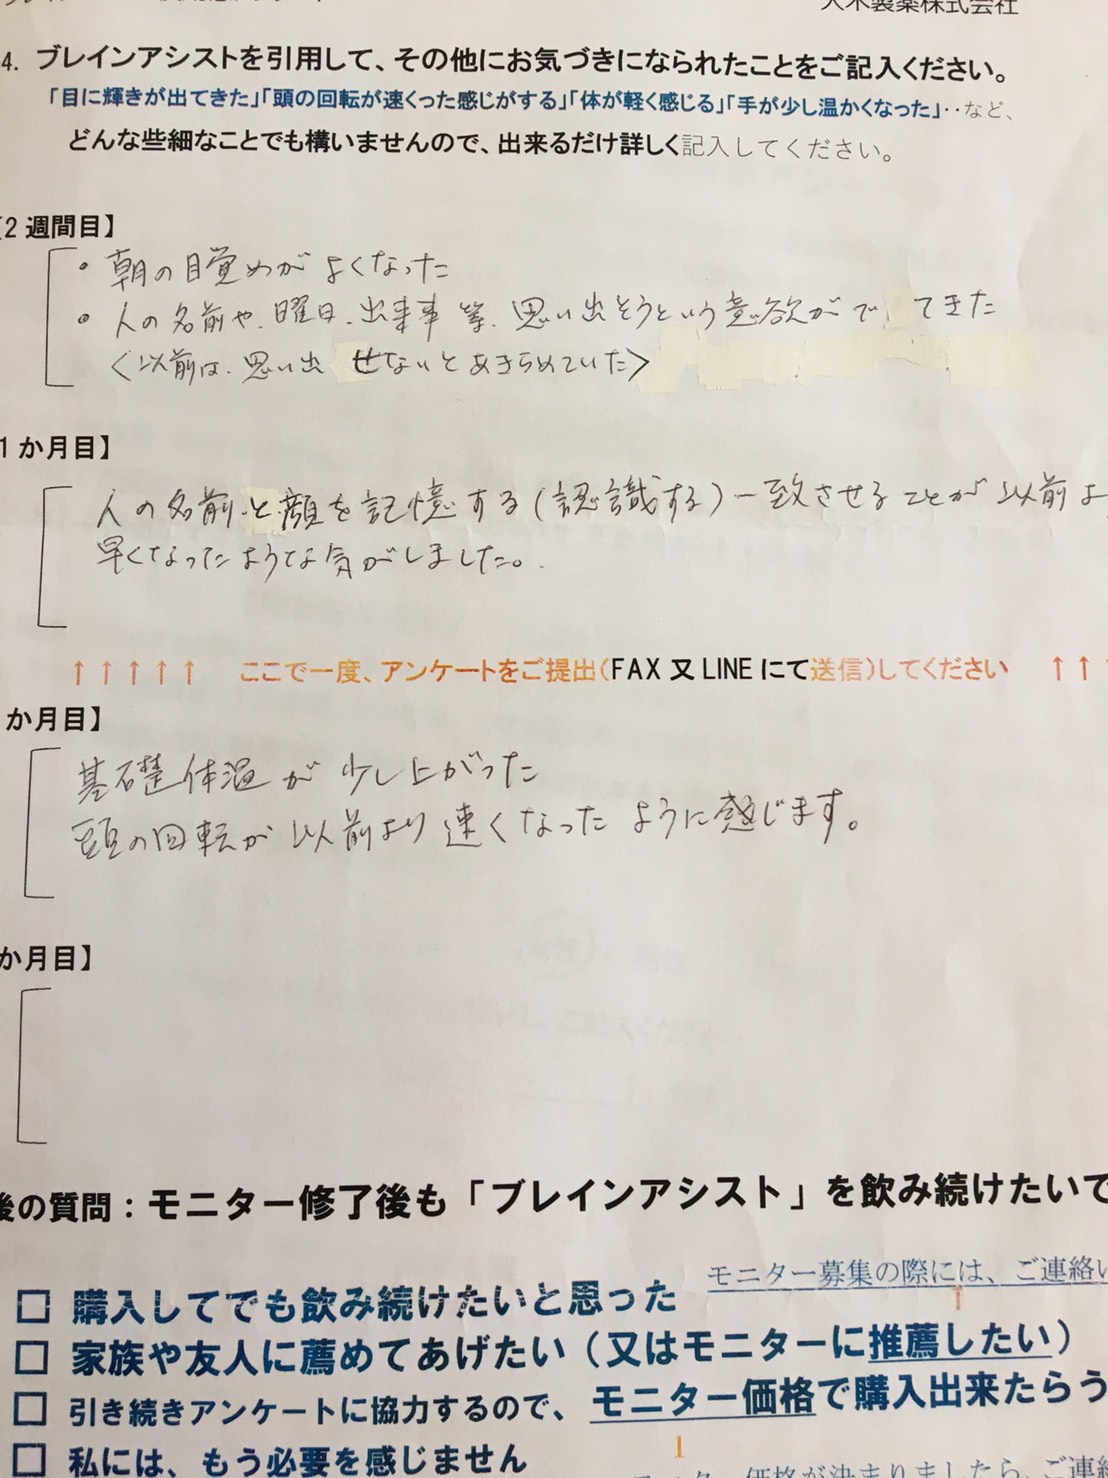 大木製薬株式会社
4. ブレインアシストを引用して、その他にお気づきになられたことをご記入ください。
「目に輝きが出てきた」「頭の回転が速くった感じがする」「体が軽く感じる」「手が少し温かくなった」‥など、
どんな些細なことでも構いませんので、出来るだけ詳しく記入してください。
【2 週間目】
・朝の目覚めがよくなった
・人の名前や、曜日、出来事 等、思い出そうという意欲がでてきた
〈以前は、思い出せないとあきらめていた〉
1 か月目】
人の名前と顔を記憶する(認識する)一致させることが以前よ
早くなったような気がしました。
↑↑↑↑↑ ここで一度、アンケートをご提出(FAX 又 LINE にて送信)してください ↑↑
か月目】
基礎体温が少し上がった
頭の回転が以前より速くなったように感じます。
か月目】
後の質問：モニター修了後も「ブレインアシスト」を飲み続けたいで
モニター募集の際には、ご連絡い
□ 購入してでも飲み続けたいと思った
□ 家族や友人に薦めてあげたい（又はモニターに推薦したい）
□ 引き続きアンケートに協力するので、モニター価格で購入出来たらう
□ 私には、もう必要を感じません
モニター価格が決まりましたら、ご連絡